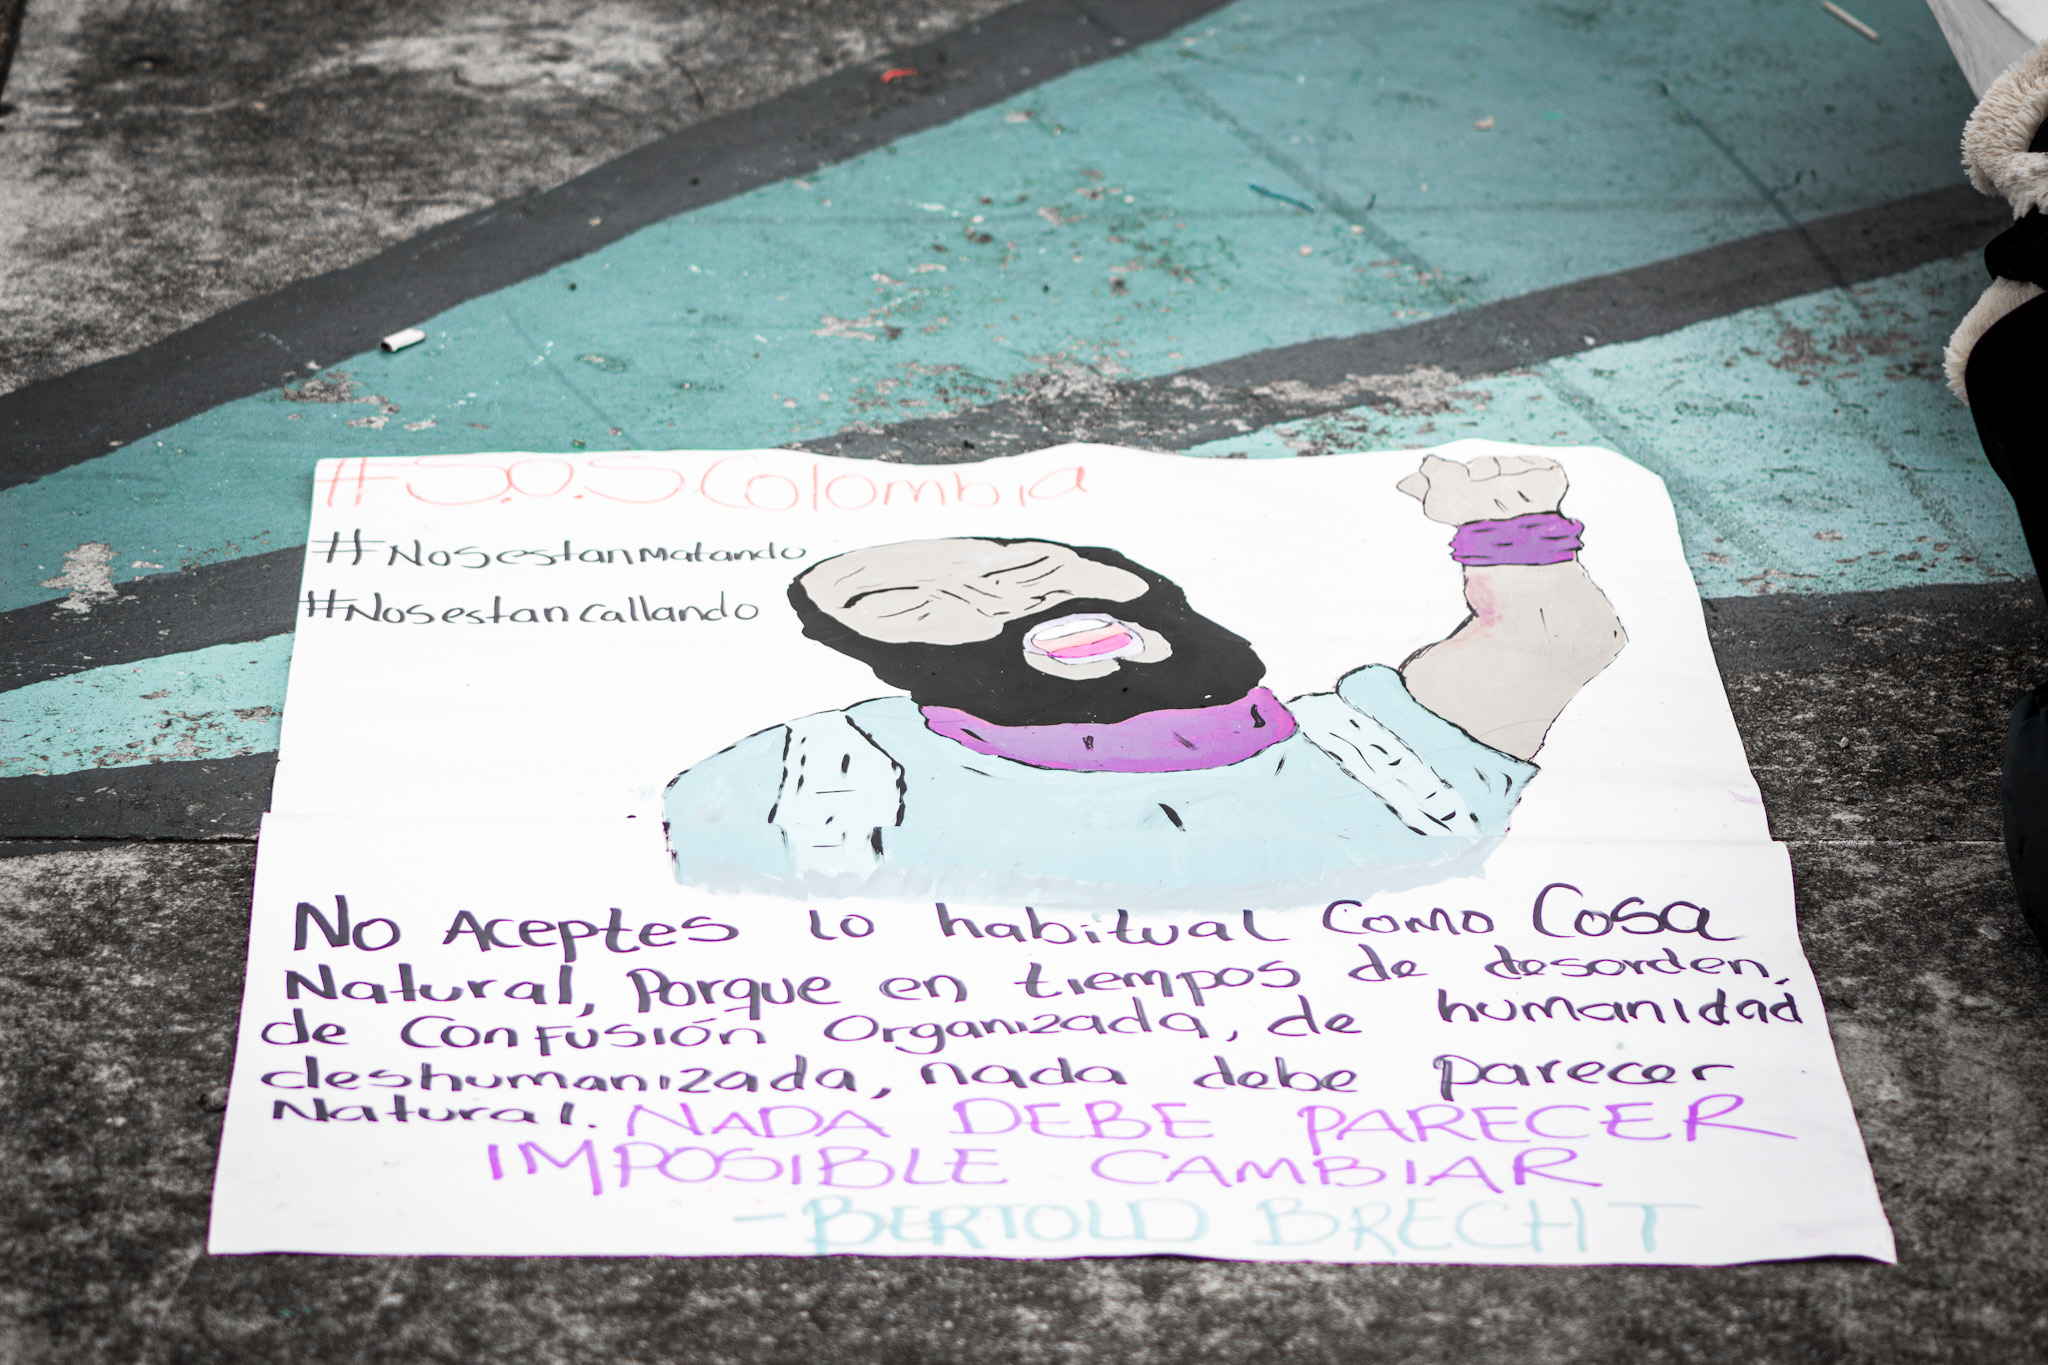 #S.O.S Colombia
#Nos estan matando
#Nos estan callando
No Aceptes lo habitual como Cosa
Natural, Porque en tiempos de desorden,
de Confusión Organizada, de humanidad
deshumanizada, nada debe parecer
Natural. NADA DEBE PARECER
IMPOSIBLE CAMBIAR
-BERTOLD BRECHT